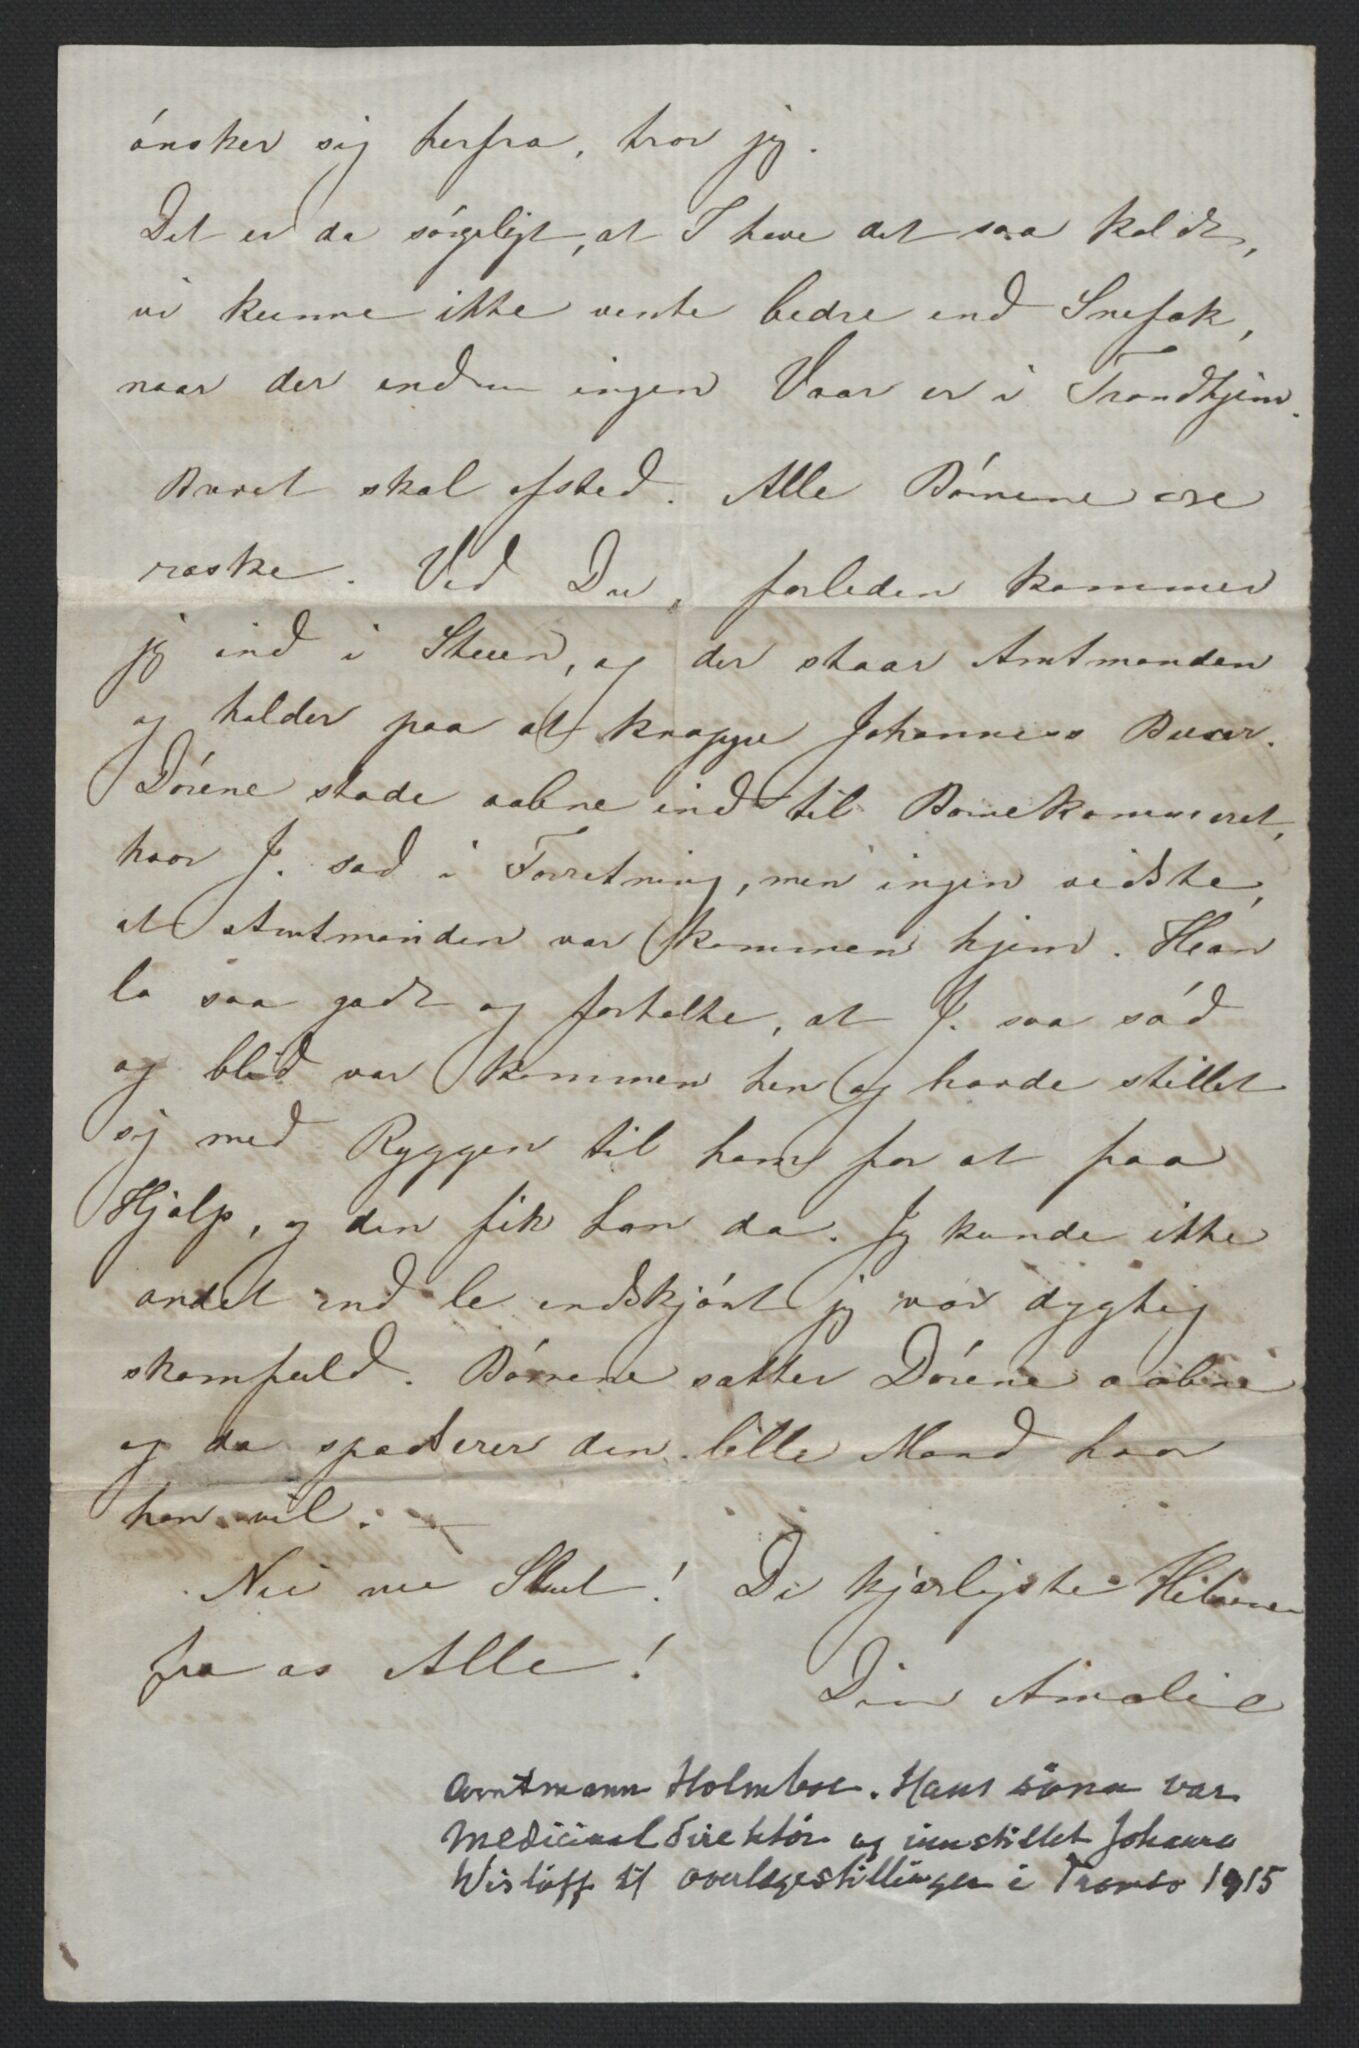 ónsker sig herfra, tror jeg.
Det er da sórgeligt, at I have det saa koldt,
vi kunne ikke vente bedre end Snefok,
naar der endnu ingen Vaar er i Trondhjem.
Brevet skal afsted. Alle Bórnene ere
raske. Ved Du, forleden kommer
jeg ind i Stuen, og der staar Amtmanden
og holder paa at knappe Johanness Buxer.
Dórene stode aabne ind til Bornekammeret,
hvor J. sad i Forretning, men ingen vidste,
at Amtmanden var kommen hjem. Han
lo saa godt og fortalte, at J. saa sód
og blid var kommen hen og havde stillet
sig med Ryggen til ham for at faa
Hjælp, og den fik han da. Jeg kunde ikke
andet end le endskjónt jeg var dygtig
skamfuld. Bórnene sætter Dórene aabne
og da spadserer den lille Mand hvor
han vil. —
Nu nu Slut! De kjærligste Hilsener
fra os Alle!
Din Amalie
Amtmann Holmboe. Hans sönn var
Medicinaldirektör og innstillet Johannes
Wislöff til overlegestillingen i Tromsö 1915